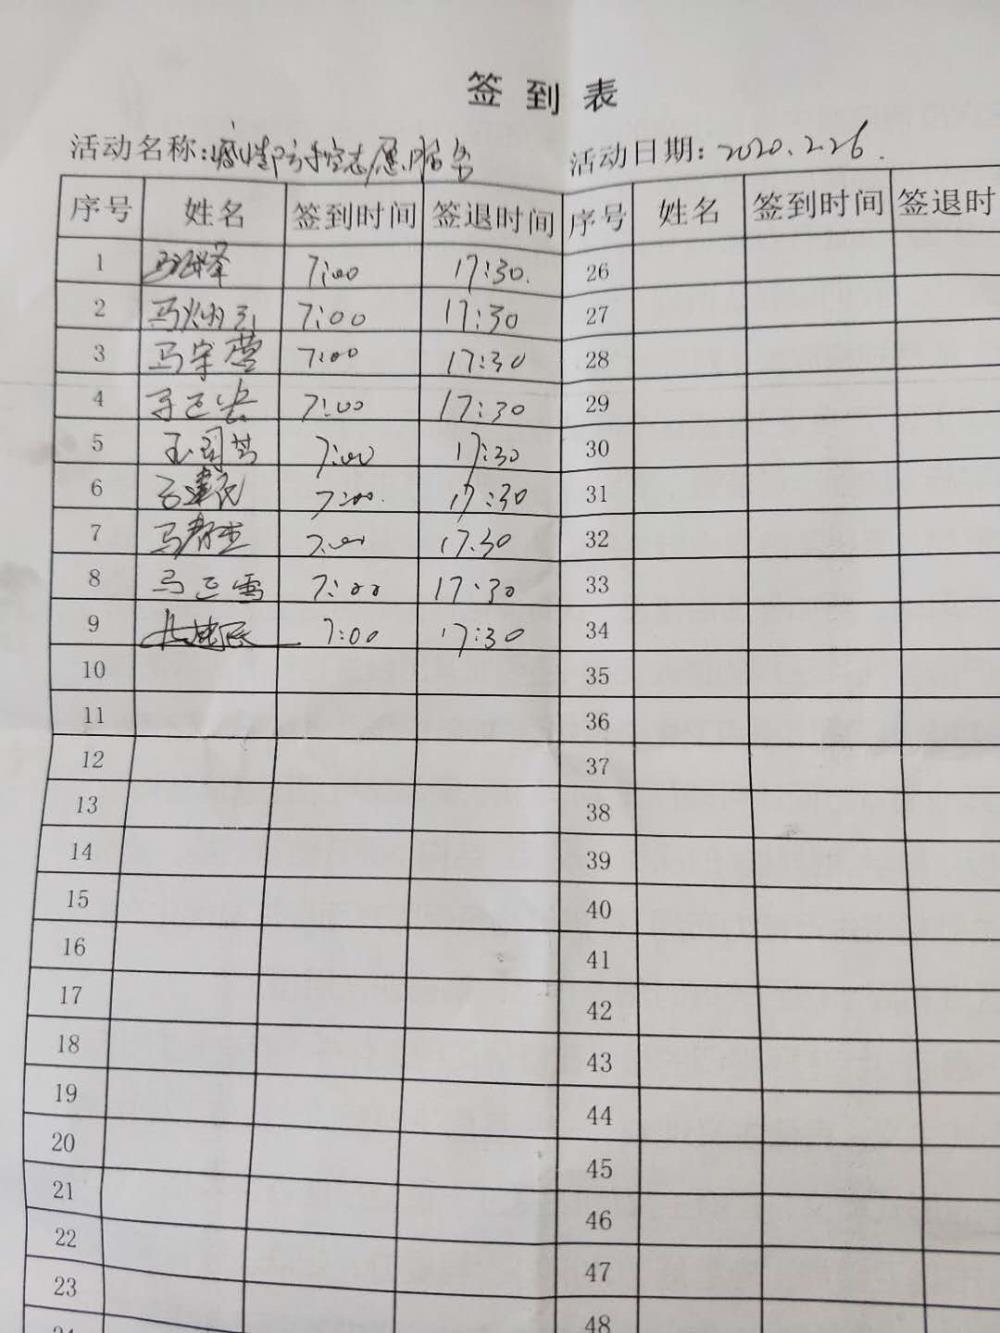 签到表
活动名称:疫情防控志愿服务 活动日期:2020.2.26.
序号 姓名 签到时间 签退时间 序号 姓名 签到时间 签退时
1 7:00 17:30. 26
2 马 7:00 17:30 27
3 马宇莹 7:00 17:30 28
4 7:00 17:30 29
5 7:00 17:30 30
6 7:00. 17:30 31
7 马 7:00 17.30 32
8 马正雪 7:00 17:30 33
9 7:00 17:30 34
10 35
11 36
12 37
13 38
14 39
15 40
16 41
17 42
18 43
19 44
20 45
21 46
22 47
23 48